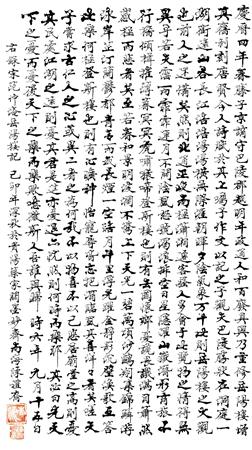 慶曆四年春滕子京謫守巴陵郡越明年政通人和百廢具興乃重修岳陽樓增
其舊制刻唐賢今人詩賦於其上屬予作文以記之予觀夫巴陵勝狀在洞庭一
湖銜遠山吞長江浩浩湯湯橫無際涯朝暉夕陰氣象萬千此則岳陽樓之大觀
也前人之述備矣然則北通巫峽南極瀟湘遷客騷人多會于此覽物之情得無
異乎若夫霪雨霏霏連月不開陰風怒號濁浪排空日星隱耀山岳潛形商旅不
行檣傾楫摧薄暮冥冥虎嘯猿啼登斯樓也則有去國懷鄉憂讒畏譏滿目蕭然
感極而悲者矣至若春和景明波瀾不驚上下天光一碧萬頃沙鷗翔集錦鱗游
泳岸芷汀蘭郁郁青青而或長煙一空皓月千里浮光躍金靜影沉璧漁歌互答
此樂何極登斯樓也則有心曠神怡寵辱皆忘把酒臨風其喜洋洋者矣嗟夫
予嘗求古仁人之心或異二者之為何哉不以物喜不以己悲居廟堂之高則憂
其民處江湖之遠則憂其君是進亦憂退亦憂然則何時而樂耶其必曰先天
下之憂而憂後天下之樂而樂歟噫微斯人吾誰與歸時六年九月十五日
右錄宋范仲淹岳陽樓記 己卯年深秋於貴陽蔡家關